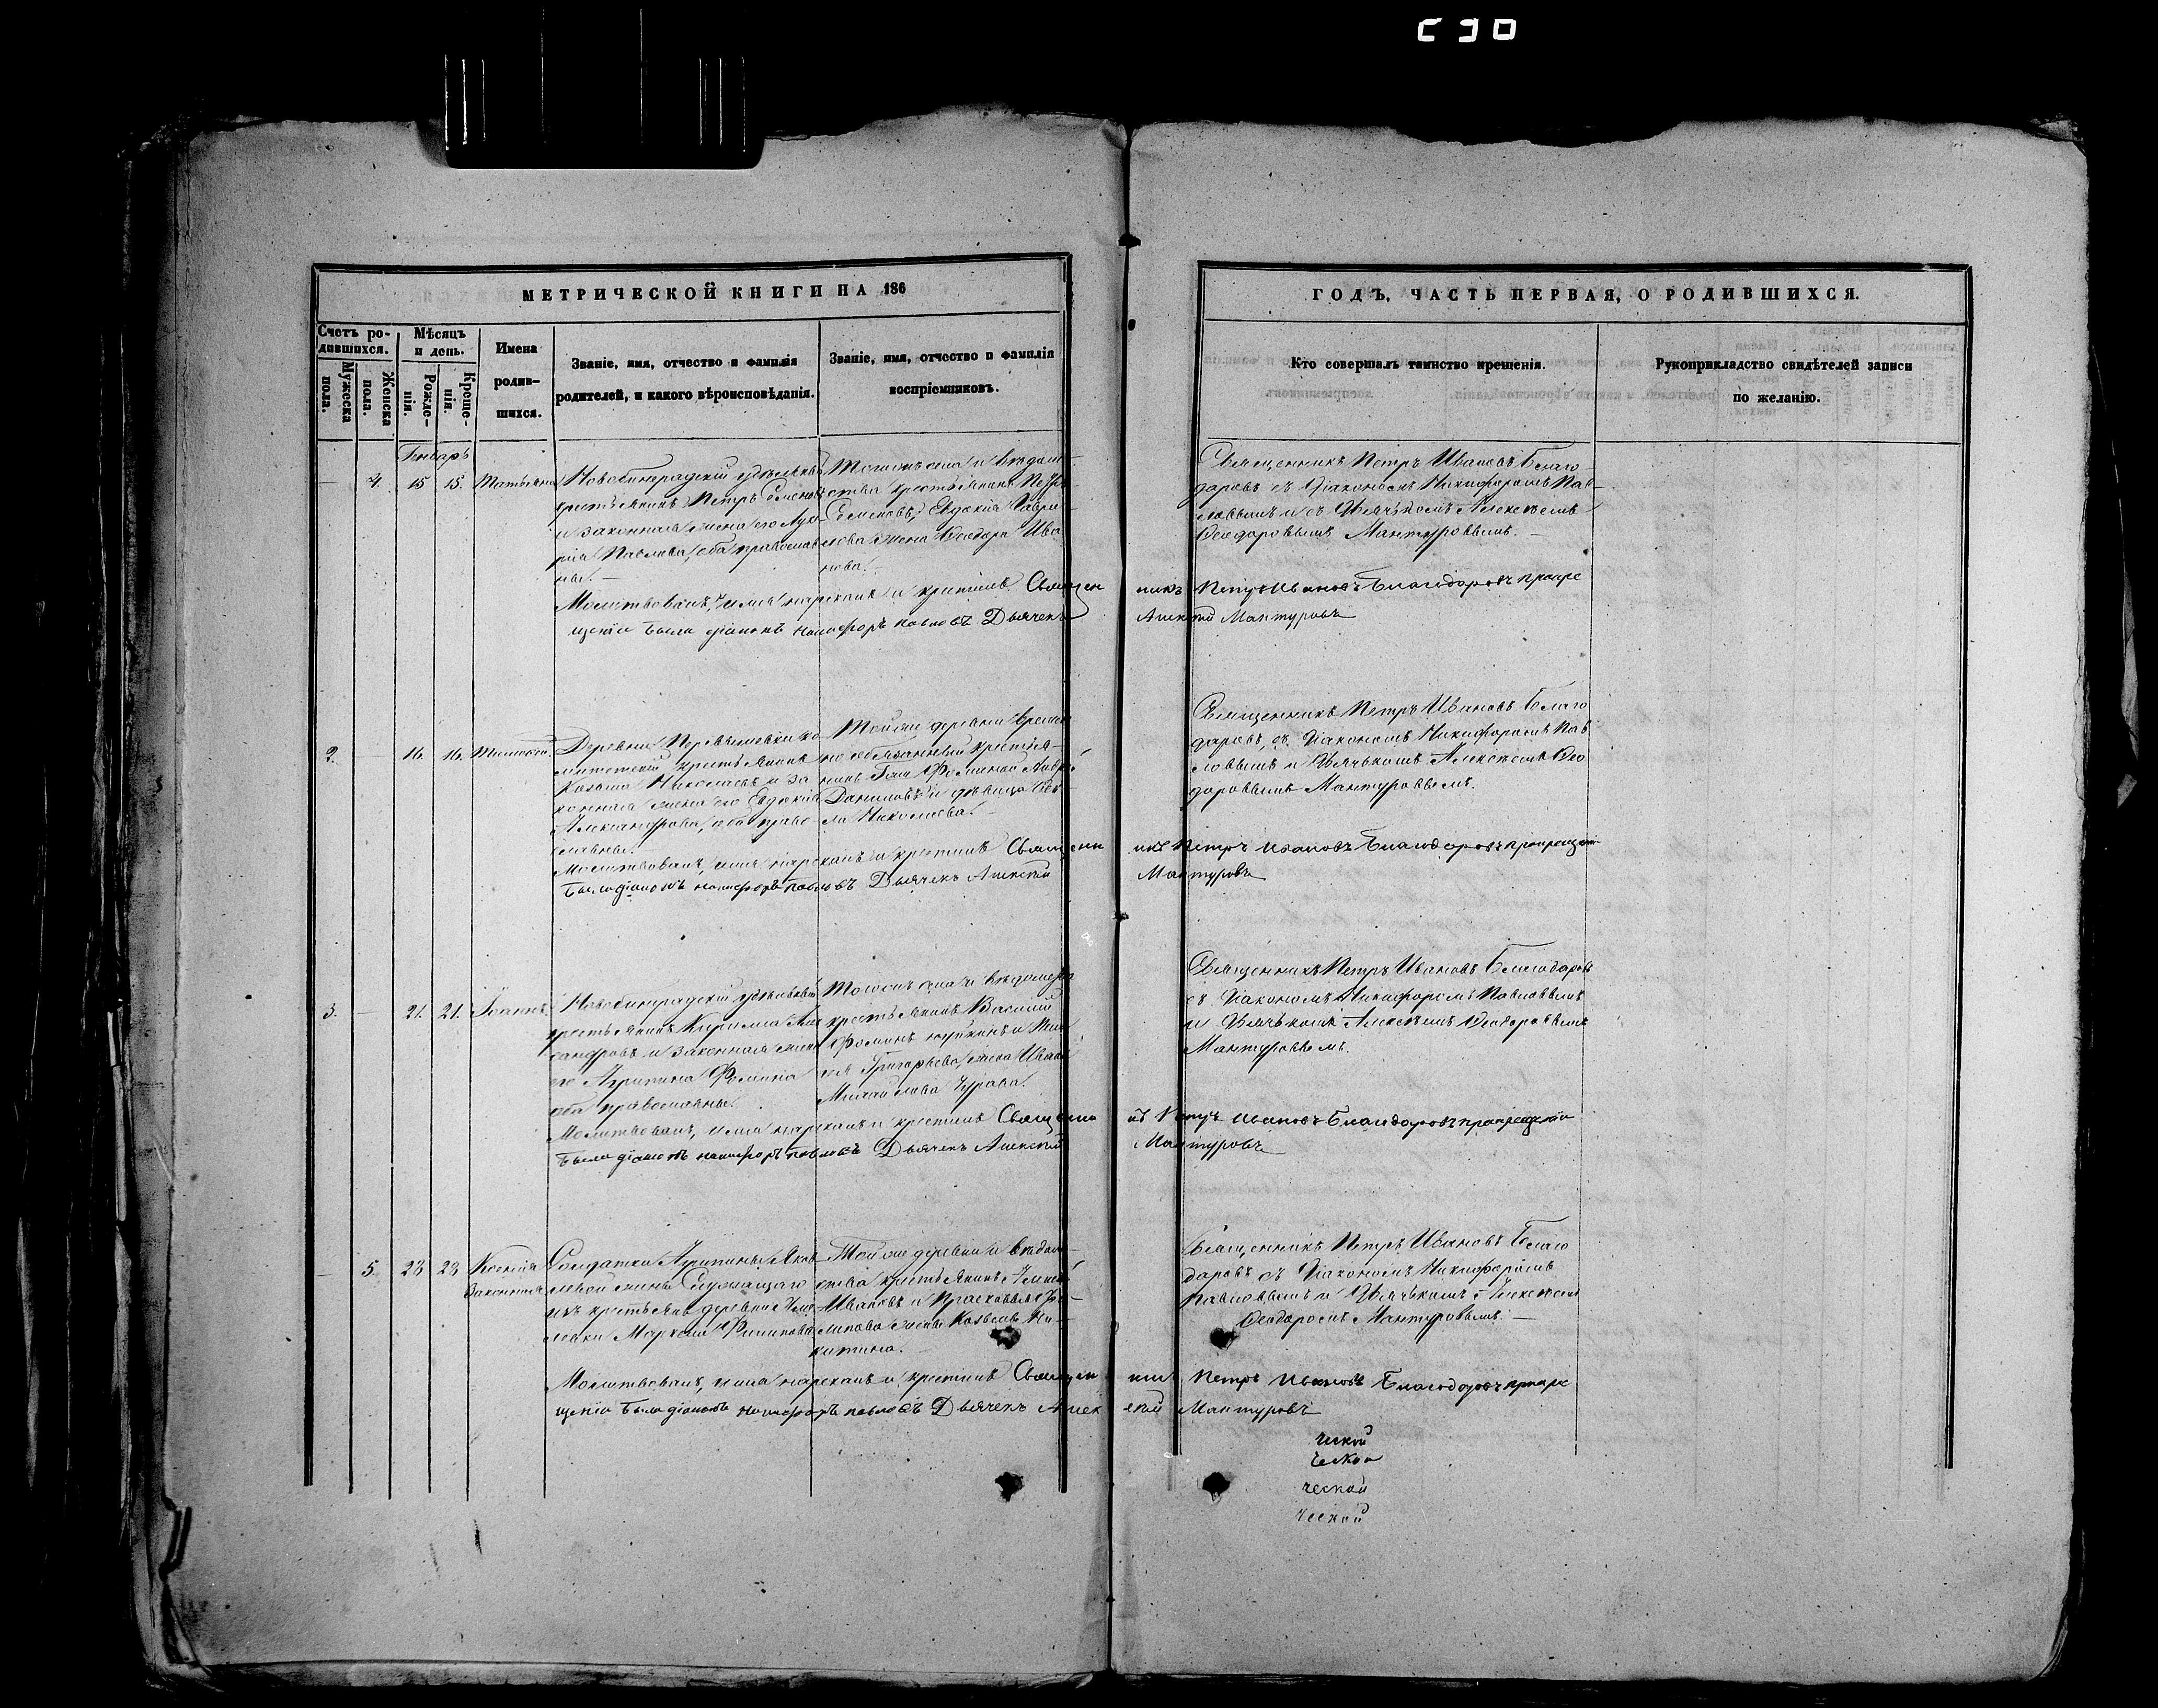 МЕТРИЧЕСКОЙ КНИГИ НА 186
ГОДЪ, ЧАСТЬ ПЕРВАЯ, О РОДИВШИХСЯ.
Счетъ ро-
дившихся.
Мужеска
пола.
Женска
пола.
Мѣсяцъ
и день.
Рожде-
нія.
Креще-
нія.
Имена
родив-
шихся.
Званіе, имя, отчество и фамилія
родителей, и какого вѣроисповѣданія.
Званіе, имя, отчество и фамилія
воспріемниковъ.
Кто совершалъ таинство крещенія.
Рукоприкладство свидѣтелей записи
по желанію.
Генварь
4. 15 15. Татьяна
крестьянинъ Петръ Семеновъ
и законная жена его
Павлова, оба православ
ны.
Тогоже села и вѣдом
ства крестьянинъ
Семеновъ, Евдокія Гаври
лова жена Ѳеодора Ива
нова.
Священникъ Петръ Ивановъ Благо
даровъ съ Діакономъ Никифоромъ Пав
ловымъ и съ Дьячькомъ Алексѣемъ
Ѳеодоровымъ Мантуровымъ.
Молитвовалъ, имя нарекалъ и крестилъ Священ никъ Петръ Ивановъ Благодаровъ прикре
щеніи были діаконъ никифоръ павловъ Дьячекъ Алексѣй Мантуровъ
2. 16. 16. Тимофей.
Деревни
крестьянинъ
Николаевъ и за
конная жена его Евдокія
Александрова, оба право
славны.
Тойже деревни времен
но обязанный крестья
нинъ
Даниловъ и дѣвица
Николаева.
Священникъ Петръ Ивановъ Благо
даровъ, съ Діакономъ Никифоромъ Пав
ловымъ и Дьячькомъ Алексѣемъ Ѳео
доровымъ Мантуровымъ.
Молитвовалъ, имя нарекалъ и крестилъ Священн икъ Петръ Ивановъ Благодаровъ прикрещеніи
были діаконъ никифоръ павловъ Дьячекъ Алексѣй Мантуровъ
3. 21. 21. Іоаннъ.
крестьянинъ Кирилла Алек
сандровъ и законная жена
его Агрипина Фомина
оба православны.
Тогоже села и вѣдомства
крестьянинъ Василій
Фоминъ
Григорьева, жена Ивана
Михайлова
Священникъ Петръ Ивановъ Благодаровъ
съ Діакономъ Никифоромъ Павловымъ
и Дьячькомъ Алексѣемъ Ѳеодоровымъ
Мантуровымъ.
Молитвовалъ, имя нарекалъ и крестилъ Священни къ Петръ Ивановъ Благодаровъ прикрещеніи
были діаконъ никифоръ павловъ Дьячекъ Алексѣй Мантуровъ
5. 28 28 Ксенія
законная
Солдатки Агрипины Яков
левой жены служащаго
изъ крестьянъ деревни
Филипова
Тойже деревни и вѣдом
ства крестьянинъ
Ивановъ и Прасковья
липова жена Козьмы Ни
китина.
Священникъ Петръ Ивановъ Благо
даровъ съ Діакономъ Никифоромъ
Павловымъ и Дьячькомъ Алексѣемъ
Ѳеодоромъ Мантуровымъ.
Молитвовалъ, имя нарекалъ и крестилъ Священ никъ Петръ Ивановъ Благодаровъ прикре
щеніи были діаконъ никифоръ павловъ Дьячекъ Алек сѣй Мантуровъ
ческой
ческой
ческой
ческой